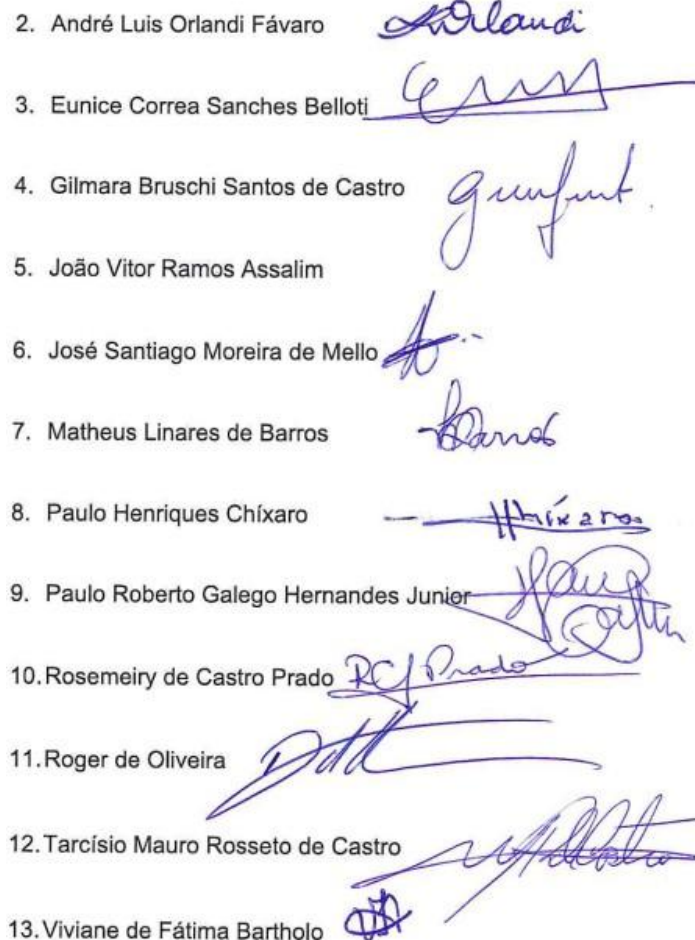 2. André Luis Orlandi Fávaro Orlandi
3. Eunice Correa Sanches Belloti
4. Gilmara Bruschi Santos de Castro
5. João Vitor Ramos Assalim
6. José Santiago Moreira de Mello
7. Matheus Linares de Barros Barros
8. Paulo Henriques Chíxaro
9. Paulo Roberto Galego Hernandes Junior
10.Rosemeiry de Castro Prado RCJ Prado
11.Roger de Oliveira
12.Tarcísio Mauro Rosseto de Castro
13.Viviane de Fátima Bartholo